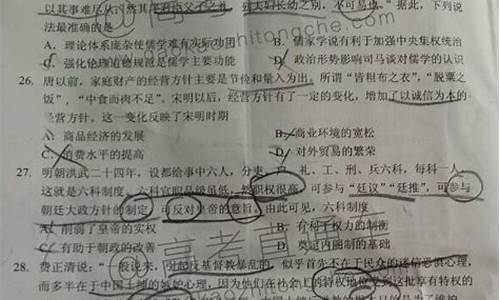 以其事难尽从
法最准确的是
A. 理论体系庞杂使儒学难有实际功用
B. 儒家学说有利于加强中央集权统治
C. 强化伦理道德规范是儒学主要功能
D. 政治形势影响司马谈对儒学的认识
26. 唐以前，家庭财产的经营方针主要是节俭和量入为出，所谓“皆粗布之衣”，“脱粟之
饭”，“中食而肉不足”。宋明以后，经营方针有了一定的变化，增加了以诚信为本的
经营方针。这一变化反映了宋明时期
A. 商品经济的发展
B. 商业环境的宽松
C. 消费水平的提高
D. 对外贸易的繁荣
27. 明朝洪武二十四年，设都给事中六人，分吏、户、礼、工、刑、兵六科，每科一人，
这就是六科制度。六科官职品级虽低，然职权很高，可参与“廷议”“廷推”，可参与
朝廷大政方针的制定，可反对皇帝的意旨。由此可见，六科制度
A. 削弱了皇帝的实权
B. 有利于权力的制衡
C. 有助于朝政的改善
D. 奠定内阁制的基础
28. 费正清说：“一般说来，对起反基督教暴乱的，似乎首先不在于民众的迷信恐惧心理，
而多半在于中国士绅的嫉妒心理，因为他们在社会上的特权地位受到这批享有特权的